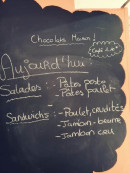 Chocolats Maison!
Aujourd'hui:
Salades: - Pâtes pesto
- Pâtes poulet
Sandwichs: - Poulet, crudités
- Jambon-beurre
- Jambon cru